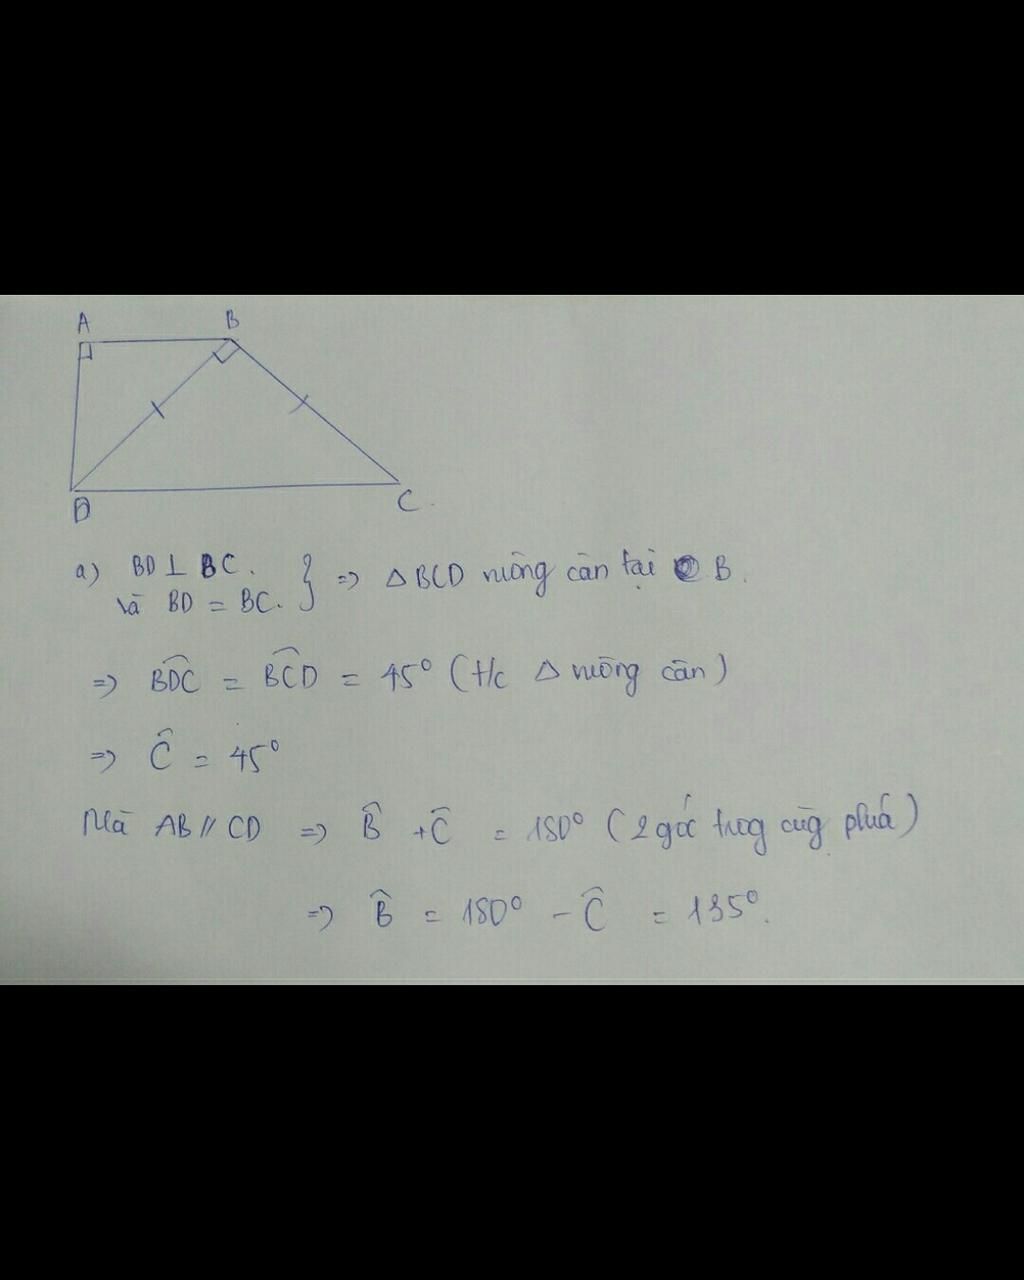 A B
D C.
a) BD ⊥ BC.
và BD = BC. } => △BCD vuông cân tại B.
=> BDC^ = BCD^ = 45° (t/c △ vuông cân)
=> Ĉ = 45°
Mà AB // CD => B̂ + Ĉ = 180° (2 góc trog cùg phía)
=> B̂ = 180° - Ĉ = 135°.